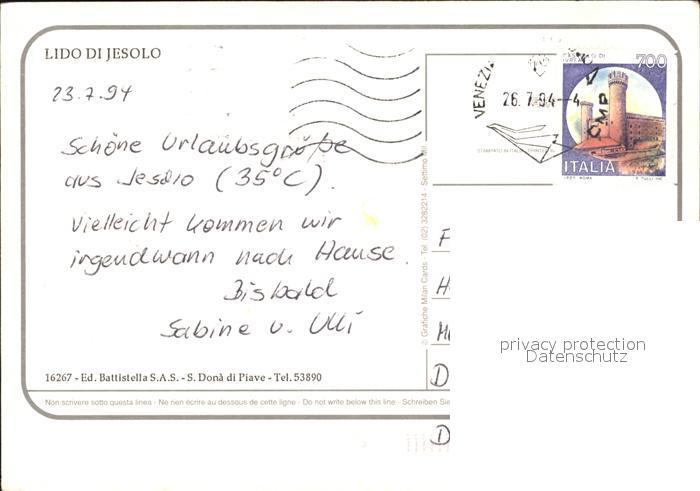 LIDO DI JESOLO
23.7.94
Schöne Urlaubsgrüße
aus Jesolo (35°C).
Vielleicht kommen wir
irgendwann nach Hause.
Bis bald
Sabine u. Ulli
16267 - Ed. Battistella S.A.S. - S. Donà di Piave - Tel. 53890
Non scrivere sotto questa linea - Ne rien écrire au dessous de cette ligne - Do not write below this line - Schreiben Sie
© Grafiche Milan Cards - Tel. (02) 3282214 - Settimo MI
VENEZI
26.7.94--4
CMP
700
ITALIA
STAMPATO IN ITALIA
F
H
D
D
privacy protection
Datenschutz